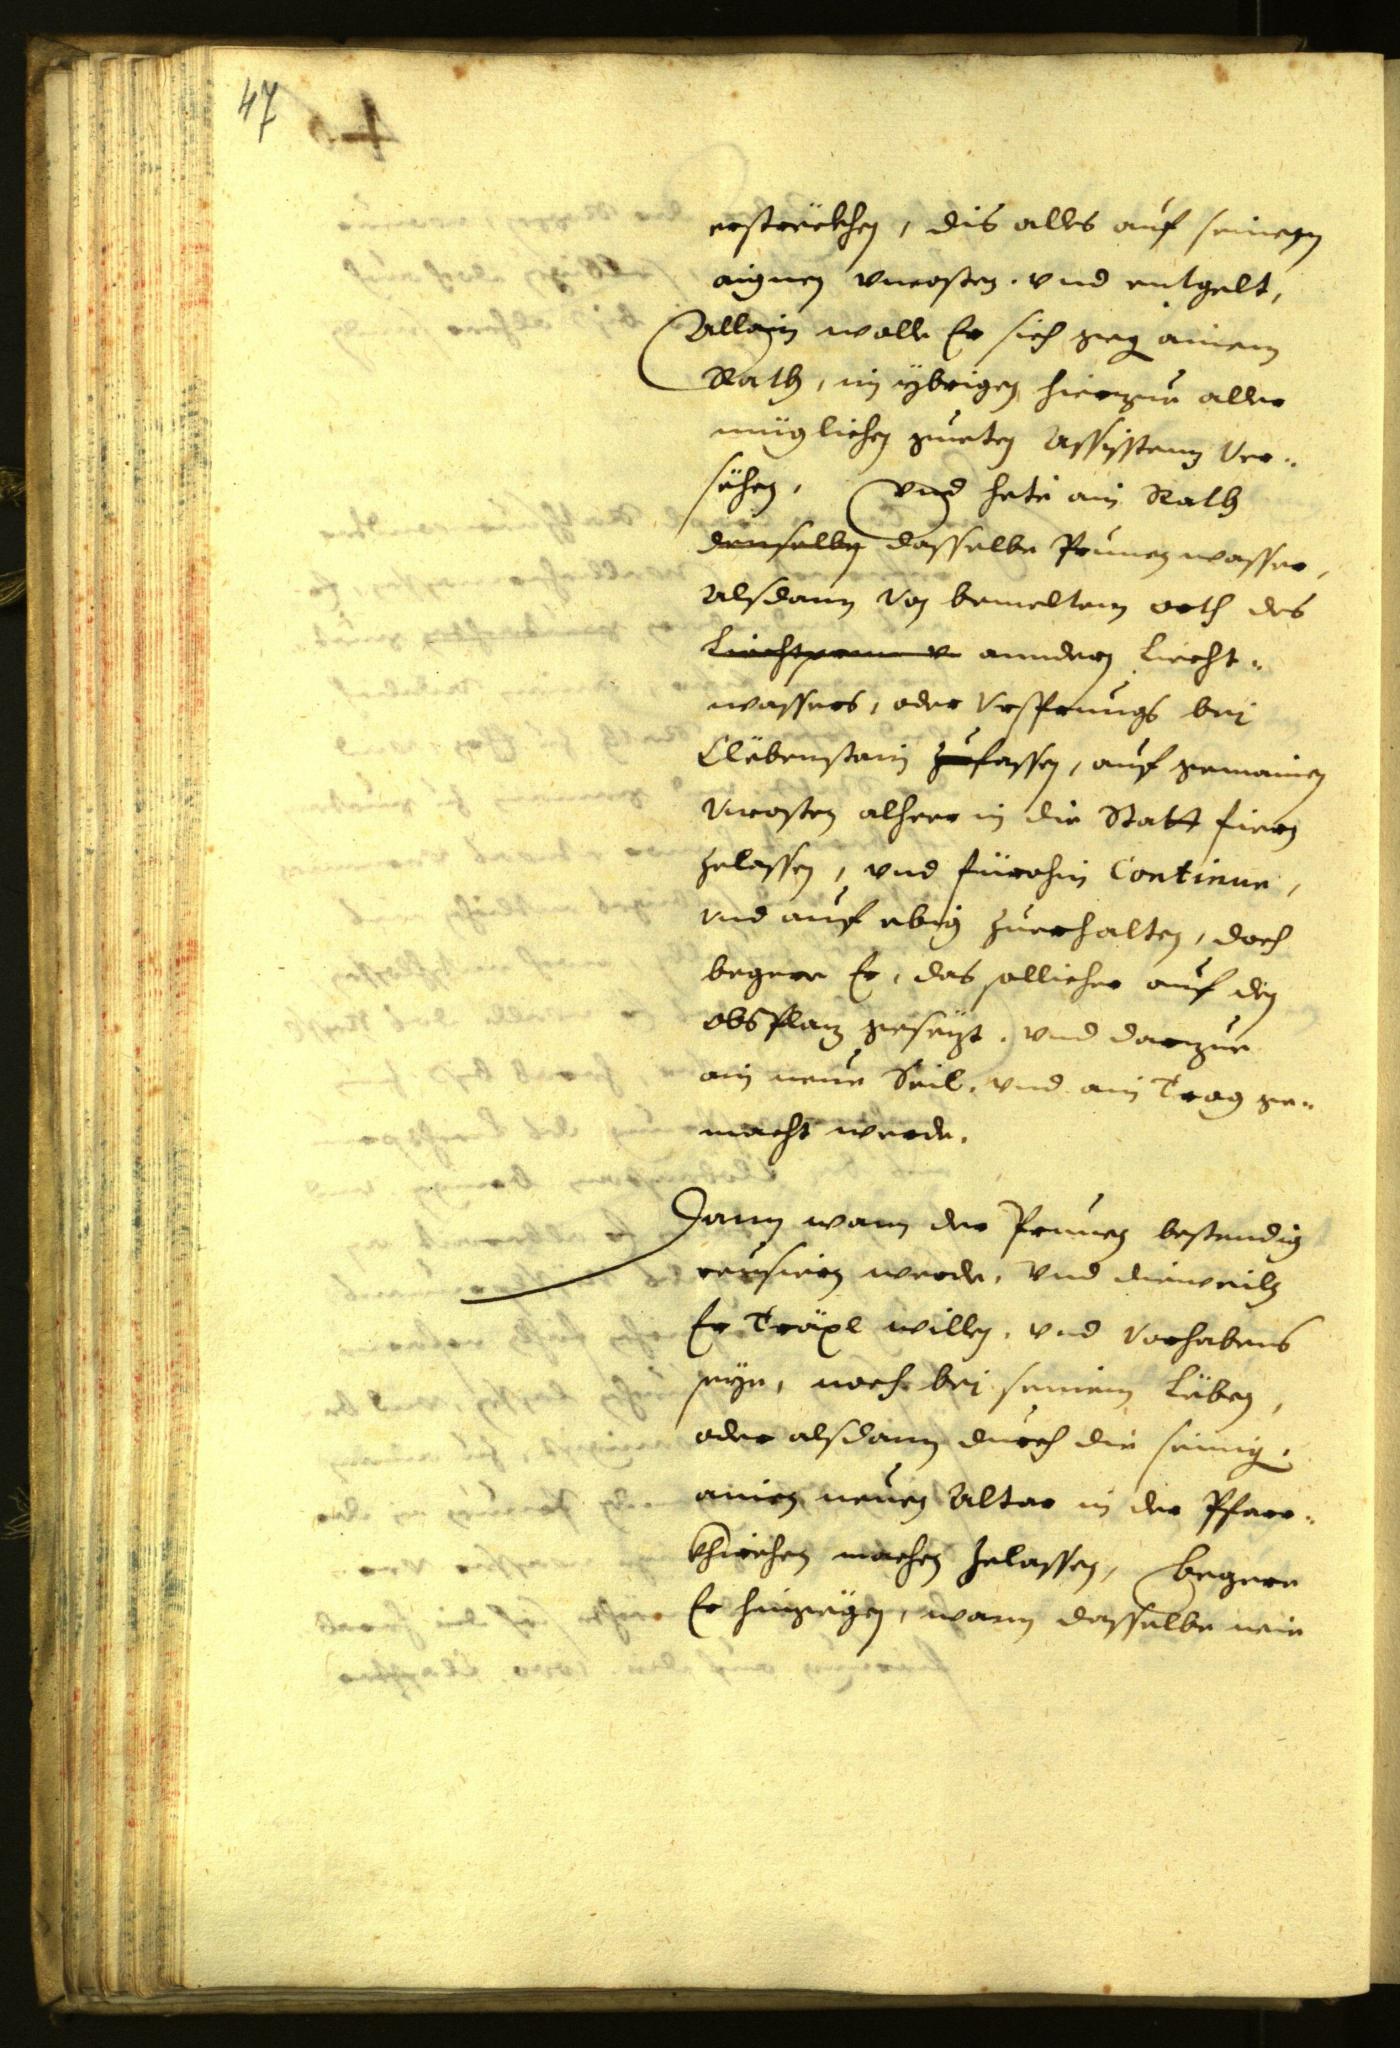 47
erströckhen, dis alles auf seinem
aignen vncosten. vnd entgelt,
Allain wolle Er sich gegen ainem
Rath, im ÿbrigen hierzue aller
müglichen gueten Assistenz ver-
sëhen, vnd hete ain Rath
denselben dasselbe Prunen wasser,
Alsdann von bemeltem orth des
anndern Liecht-
wassers, oder Vrsprungs bei
Clëbenstain zufassen, auf gemainen
vncosten alheer in die Statt fiern
zelassen, vnd fürohin Continue,
vnd auf ebig zuerhalten, doch
begere Er, das sollicher auf den
obsplaz gesezt, vnd darzue
ain neue Seil, vnd ain Trog ge-
macht werde.
Dann wann der Prunen bestendig
reusiern werde, vnd dieweiln
Er Träxl willen, vnd vorhabens
seye, noch bei seinem Lëben,
oder alsdann durch die seinigen
ainen neuen Altar in der Pfarr-
khirchen machen zelassen, begere
Er hingegen, wann dasselbe neie